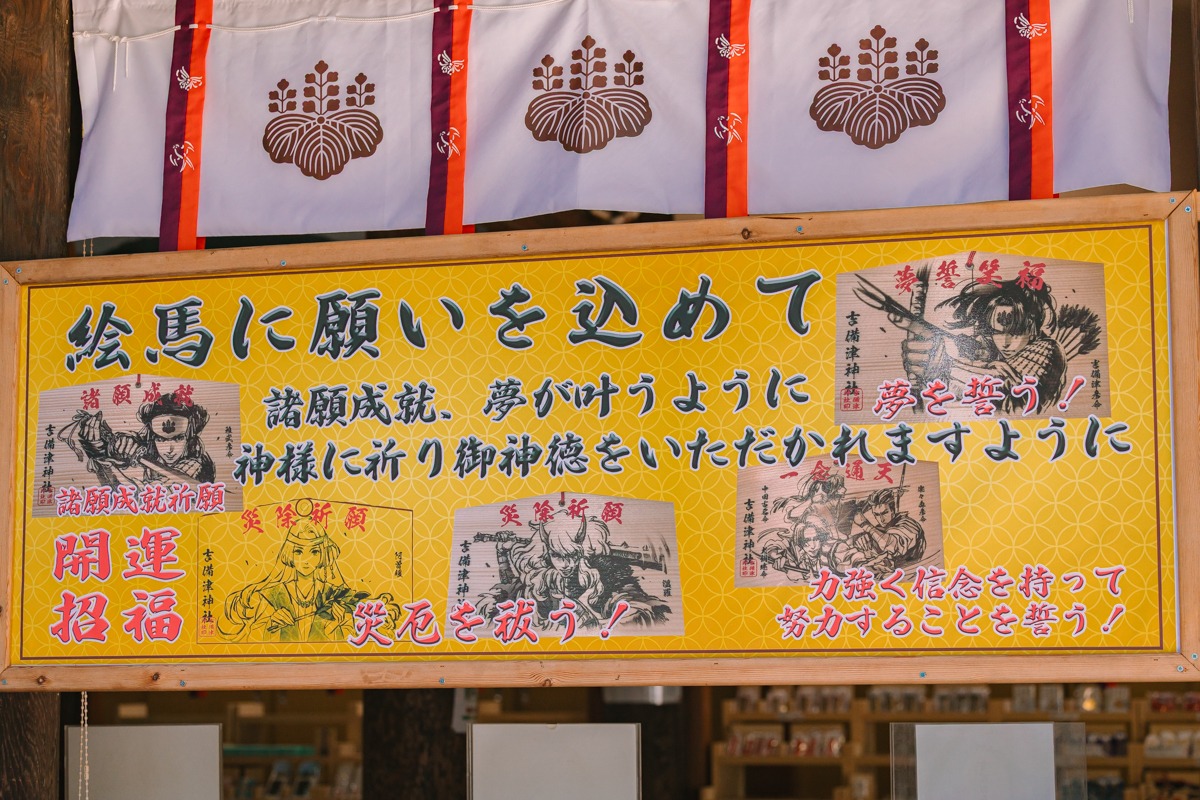 絵馬に願いを込めて
諸願成就、夢が叶うように
神様に祈り御神徳をいただかれますように
夢誓笑福
吉備津神社
吉備津彦命
夢を誓う!
諸願成就
吉備津神社
諸願成就祈願
開運
招福
災除祈願
吉備津神社
阿曽媛
災除祈願
吉備津神社
温羅
災厄を祓う!
一念通天
吉備津神社
力強く信念を持って
努力することを誓う!